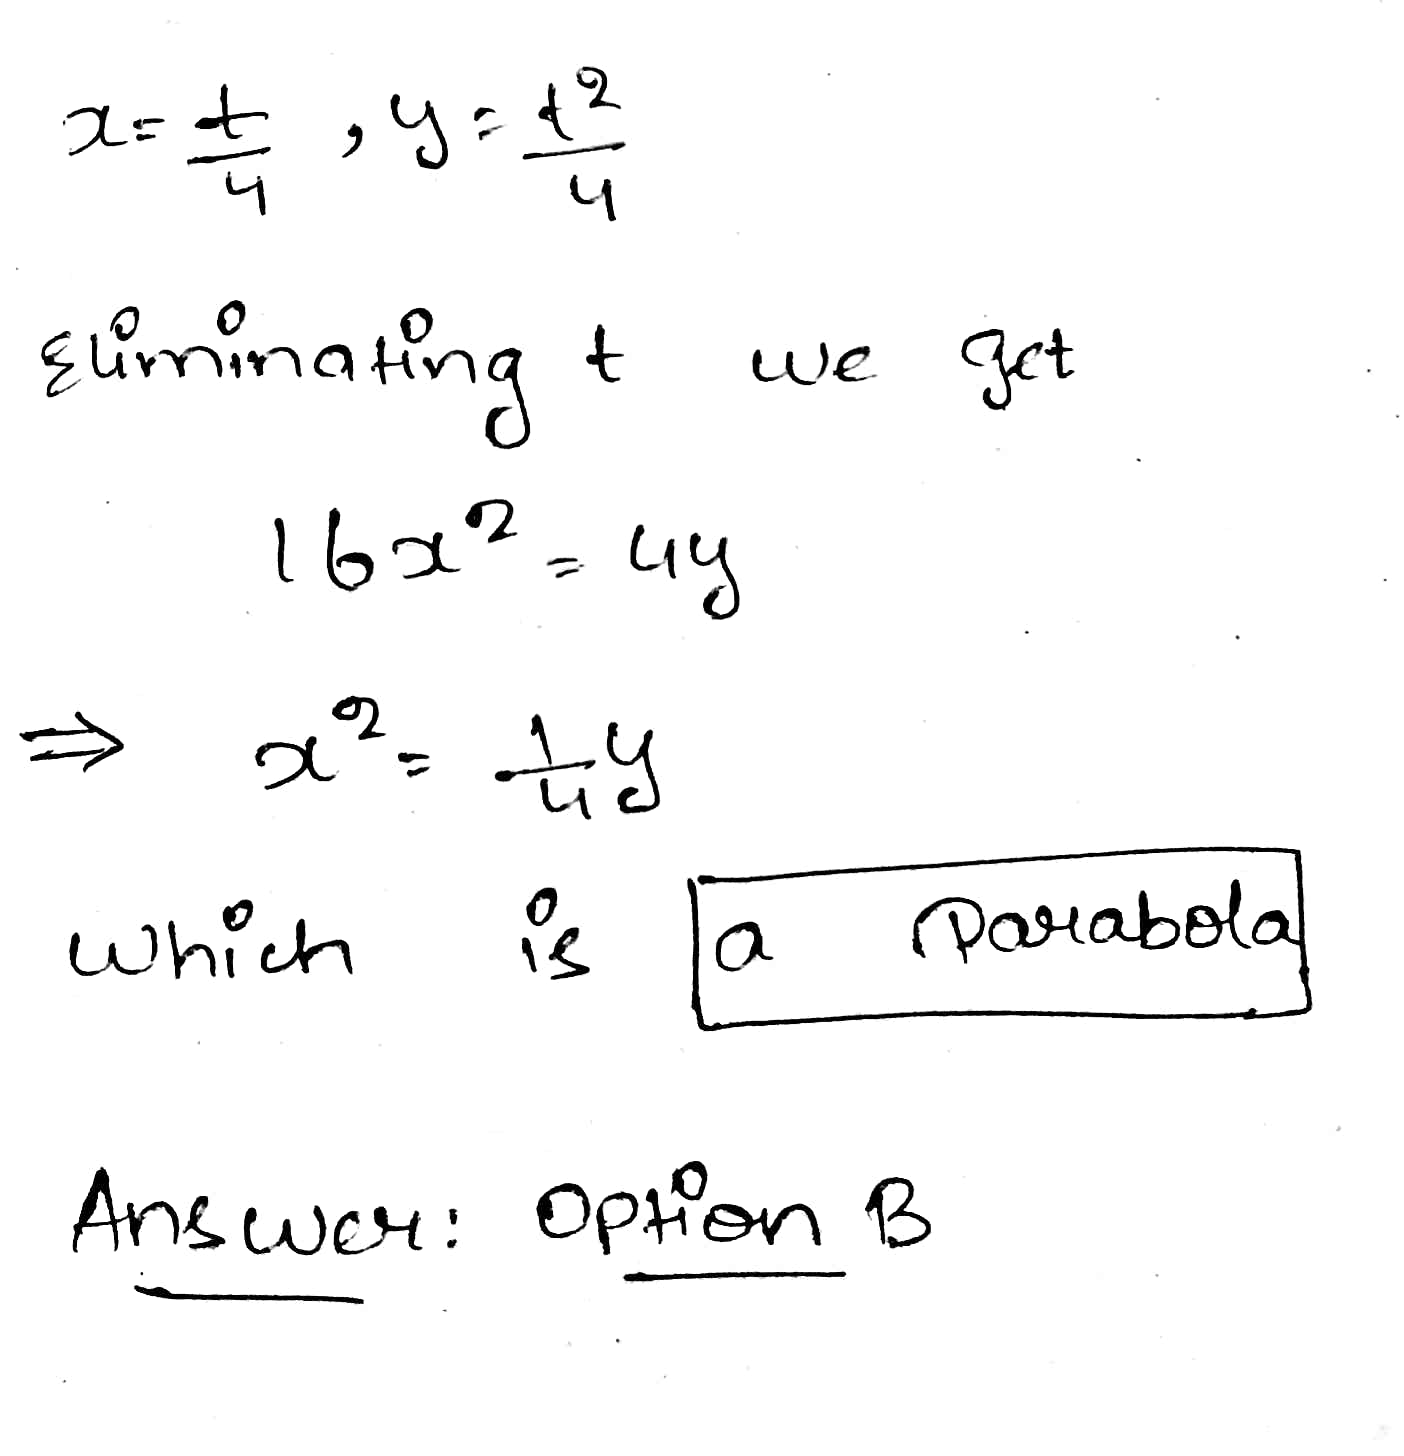 x = t/4 , y = t²/4
Eliminating t we get
16x² = 4y
⇒ x² = 1/4 y
which is a Parabola
Answer: Option B